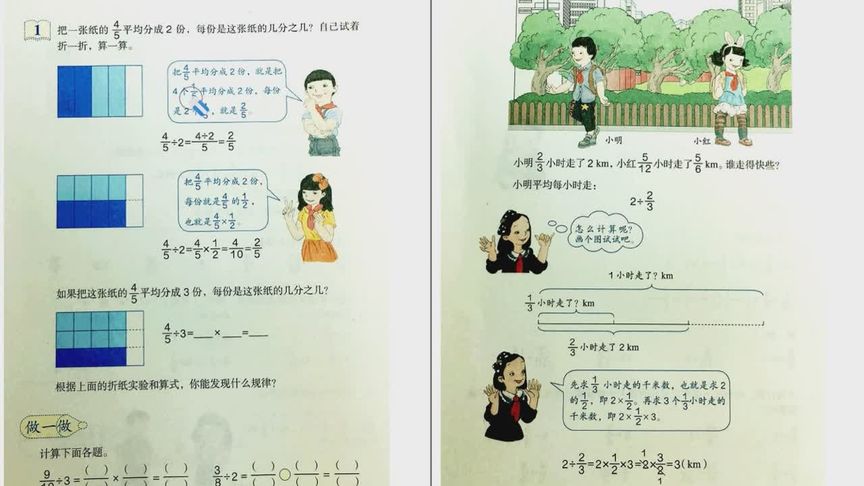 1 把一张纸的 4/5 平均分成 2 份，每份是这张纸的几分之几？自己试着
折一折，算一算。
把 4/5 平均分成 2 份，就是把
4 个
平均分成 2 份，每份
是 2
，就是 2/5。
4/5÷2=4÷2/5=2/5
把 4/5 平均分成 2 份，
每份就是 4/5 的 1/2，
也就是 4/5×1/2。
4/5÷2=4/5×1/2=4/10=2/5
如果把这张纸的 4/5 平均分成 3 份，每份是这张纸的几分之几？
4/5÷3=___×___=___
根据上面的折纸实验和算式，你能发现什么规律？
做一做
计算下面各题。
÷3=( )/( )×( )/( )=( )/( )
3/8÷2=( )/( )○( )/( )=( )/( )
小明
小红
小明 2/3 小时走了 2 km，小红 5/12 小时走了 5/6 km。谁走得快些？
小明平均每小时走：
2÷2/3
怎么计算呢？
画个图试试吧。
1 小时走了？km
1/3 小时走了？km
2/3 小时走了 2 km
先求 1/3 小时走的千米数，也就是求 2
的 1/2，即 2×1/2。再求 3 个 1/3 小时走的
千米数，即 2×1/2×3。
2÷2/3=2×1/2×3=2×3/2=3(km)